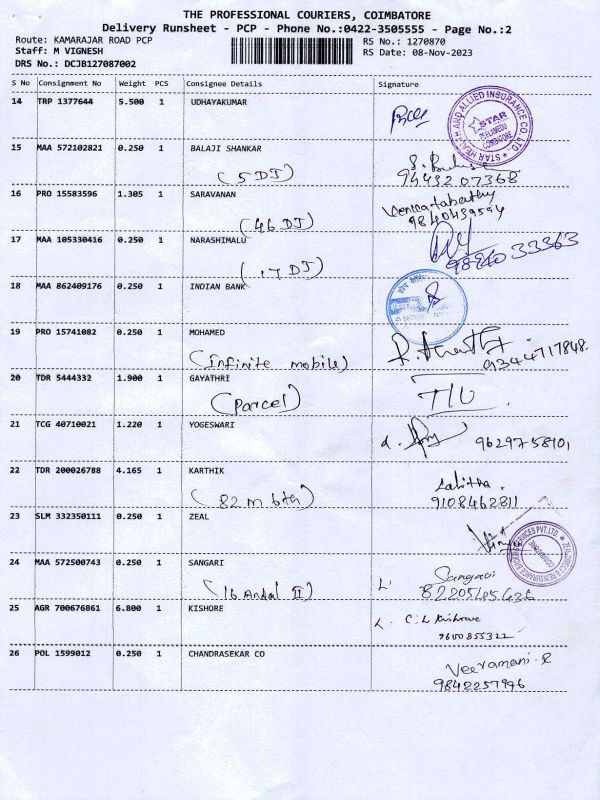 THE PROFESSIONAL COURIERS, COIMBATORE
Delivery Runsheet - PCP - Phone No.:0422-3505555 - Page No.:2
Route: KAMARAJAR ROAD PCP
RS No.: 1270870
Staff: M VIGNESH
RS Date: 08-Nov-2023
DRS No.: DCJB127087002
S No Consignment No Weight PCS Consignee Details Signature
14 TRP 1377644 5.500 1 UDHAYAKUMAR
STAR HEALTH AND ALLIED INSURANCE CO. LTD
STAR
COIMBATORE
15 MAA 572102821 0.250 1 BALAJI SHANKAR
(5 DJ)
94432 07368
16 PRO 15583596 1.305 1 SARAVANAN
(46 DJ)
Venkatabathy
9840439594
17 MAA 105330416 0.250 1 NARASHIMALU
(17 DJ)
18 MAA 862409176 0.250 1 INDIAN BANK
19 PRO 15741082 0.250 1 MOHAMED
(Infinite mobile)
9344717848.
20 TDR 5444332 1.900 1 GAYATHRI
(Parcel)
T/U
21 TCG 40710021 1.220 1 YOGESWARI
9629758101
22 TDR 200026788 4.165 1 KARTHIK
(82 m bth)
Lalitha.
9108462811
23 SLM 332350111 0.250 1 ZEAL
24 MAA 572500743 0.250 1 SANGARI
(16 Andal II)
Sangari
25 AGR 700676861 6.800 1 KISHORE
C.L Kishore
9600855322
26 POL 1599012 0.250 1 CHANDRASEKAR CO
Veeramani. R
9842257996